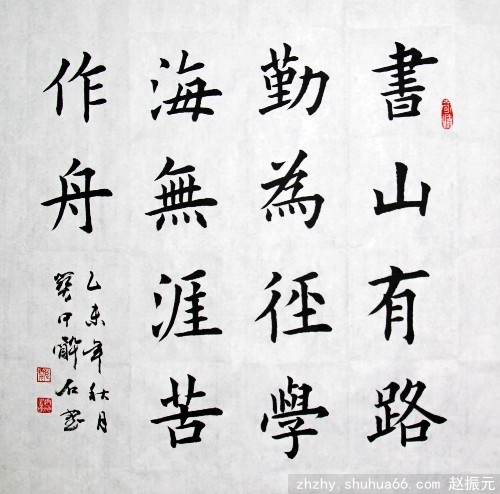 書山有路
勤為徑學
海無涯苦
作舟
乙未年秋月
石書
zhzhy.shuhua66.com 赵振元